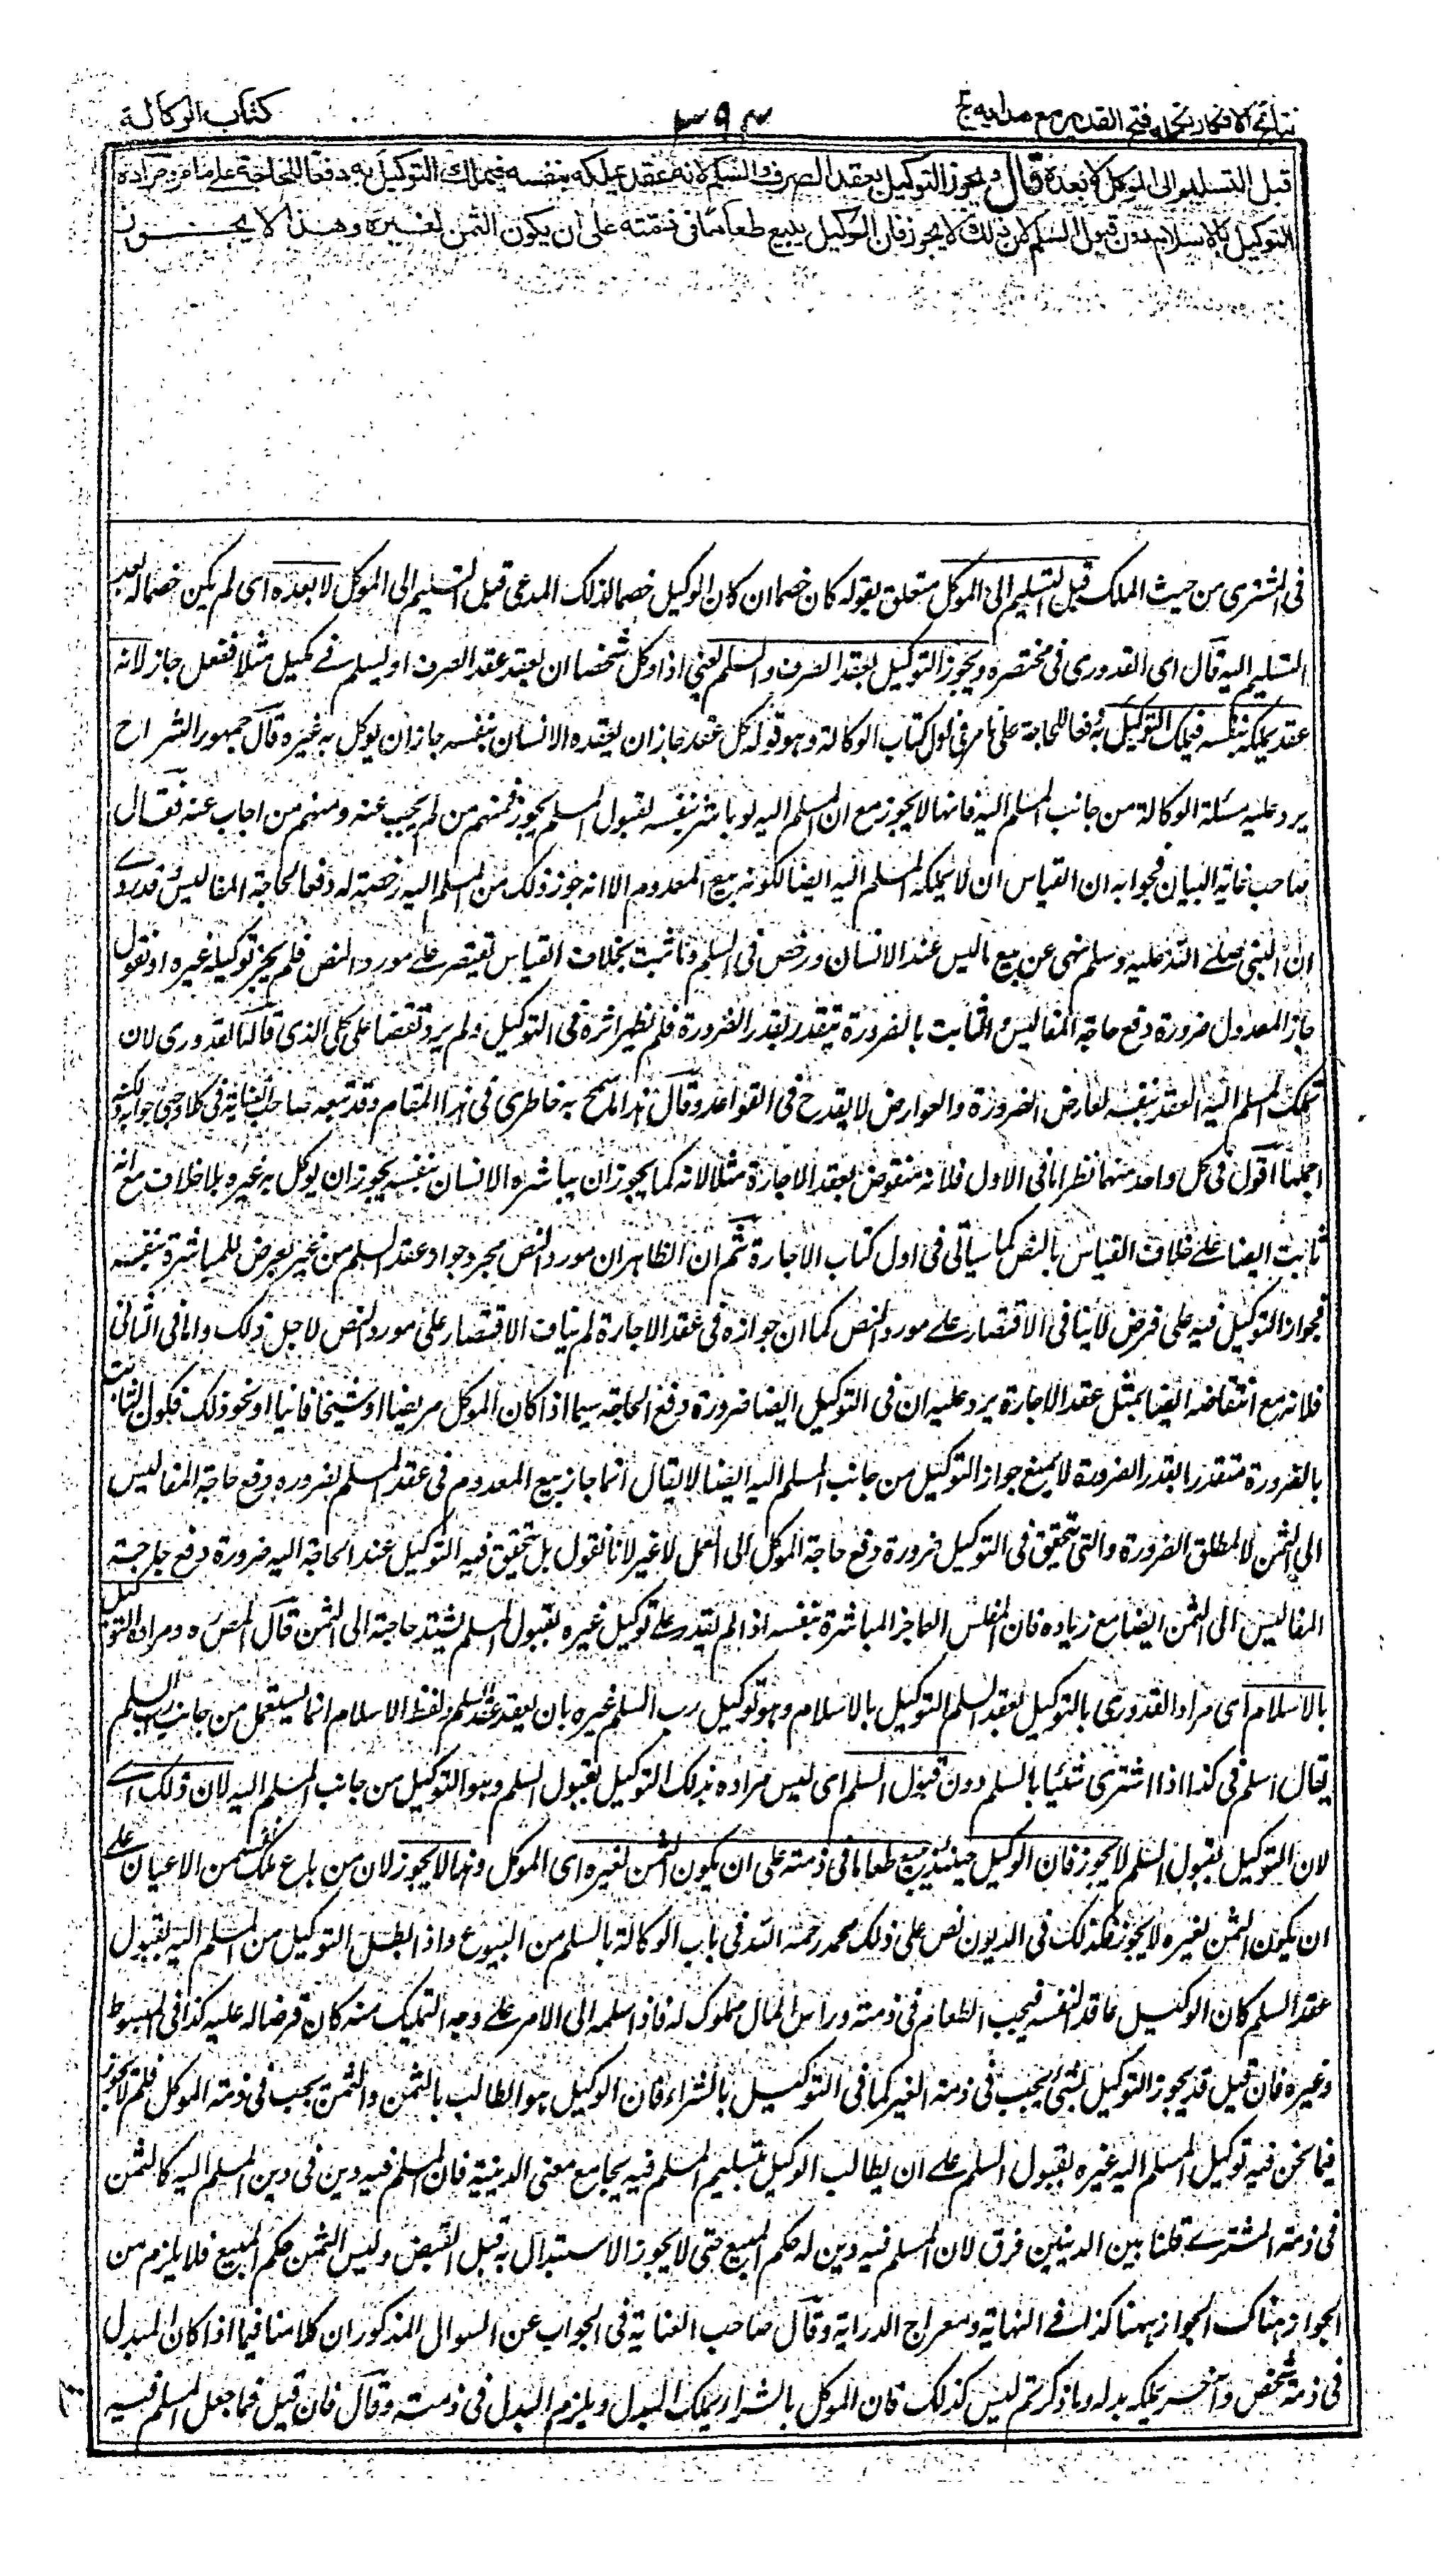 نتائج الافکار تکملہ فتح القدیر مع ہدایہ ج
۳۹۳
کتاب الوکالة
قبل التسلیم الی الموکل لا بعدہ قال ویجوز التوکیل بعقد الصرف والسلم لانہ عقد یملکہ بنفسہ فیملک التوکیل بہ دفعا للحاجة علی ما مر ومرادہ
التوکیل بالاسلام دون قبول السلم لان ذلک لا یجوز فان الوکیل یبیع طعاما فی ذمتہ علی ان یکون الثمن لغیرہ وھذا لا یجوز
فی المشتری من حیث الملک قبل التسلیم الی الموکل متعلق بقولہ کان خصما ان کان الوکیل خصما لذلک المدعی قبل التسلیم الی الموکل لا بعدہ ای لم یکن خصما لہ بعد
التسلیم الیہ قال ای القدوری فی مختصرہ ویجوز التوکیل بعقد الصرف والسلم یعنی اذا وکل شخصا ان یعقد عقد الصرف او یسلم فے مکیل مثلا ففعل جاز لانہ
عقد یملکہ بنفسہ فیملک التوکیل بہ دفعا للحاجة علی ما مر فی اول کتاب الوکالة وہو قولہ کل عقد جاز ان یعقدہ الانسان بنفسہ جاز ان یوکل بہ غیرہ قال جمہور الشراح
یرد علیہ مسئلة الوکالة من جانب المسلم الیہ فانہا لا یجوز مع ان المسلم الیہ لو باشر بنفسہ لقبول السلم یجوز فمنہم من لم یجب عنہ ومنہم من اجاب عنہ فقال
صاحب غایة البیان فجوابہ ان القیاس ان لا یملکہ المسلم الیہ ایضا لکونہ بیع المعدوم الا انہ جوز ذلک من المسلم الیہ رخصة لہ دفعا لحاجة المفالیس وقد روے
ان النبی صلے اللہ علیہ وسلم نہی عن بیع ما لیس عند الانسان ورخص فی السلم وما ثبت بخلاف القیاس یقتصر علے مورد النص فلم یجز توکیلہ غیرہ او نقول
جاز المعدول ضرورة دفع حاجة المفالیس والثابت بالضرورة یتقدر بقدر الضرورة فلم یظہر اثرہ فی التوکیل ولم یرد نقضا علی کلی الذی قالہ القدوری لان
تملک المسلم الیہ العقد بنفسہ لعارض الضرورة والعوارض لا یقدح فی القواعد وقال ہذا ما سمح بہ خاطری فی ہذا المقام وقد تبعہ صاحب العنایة فی کلا وجہی جوابہ ولکنہ
اجملہا اقول فی کل واحد منہما نظر اما فی الاول فلانہ منقوض بعقد الاجارة مثلا لانہ کما یجوز ان یباشرہ الانسان بنفسہ یجوز ان یوکل بہ غیرہ بلا خلاف مع انہ
ثابت ایضا علے خلاف القیاس بالنص کما سیاتی فی اول کتاب الاجارة ثم ان الظاہر ان مورد النص مجرد جواز عقد السلم من غیر تعرض للمباشرة بنفسہ
فجواز التوکیل فیہ علی فرض لا ینافی الاقتصار علے مورد النص کما ان جوازہ فی عقد الاجارة لم یناف الاقتصار علی مورد النص لاجل ذلک واما فی الثانی
فلانہ مع انتقاضہ ایضا بمثل عقد الاجارة یرد علیہ ان فی التوکیل ایضا ضرورة دفع الحاجة سیما اذا کان الموکل مریضا او شیخا فانیا او نحو ذلک فکون الثابت
بالضرورة متقدرا بقدر الضرورة لا یمنع جواز التوکیل من جانب المسلم الیہ ایضا لا یقال انما جاز بیع المعدوم فی عقد السلم بضرورہ دفع حاجة المفالیس
الی الثمن لا لمطلق الضرورة والتی تتحقق فی التوکیل ضرورة دفع حاجة الموکل الی العمل لا غیر لانا نقول بل تتحقق فیہ التوکیل عند الحاجة الیہ ضرورة دفع حاجة
المفالیس الی الثمن ایضا مع زیادہ فان المفلس العاجز المباشرة بنفسہ اذا لم یقدر علے توکیل غیرہ بقبول السلم یشتد حاجتہ الی الثمن قال المصرہ ومرادہ التوکیل
بالاسلام ای مراد القدوری بالتوکیل بعقد السلم التوکیل بالاسلام وہو توکیل رب السلم غیرہ بان یعقد عقد السلم ولفظ الاسلام انما یستعمل من جانب رب السلم
یقال اسلم فی کذا اذا اشتری شیئا بالسلم دون قبول السلم ای لیس مرادہ بذلک التوکیل بقبول السلم وہو التوکیل من جانب المسلم الیہ لان ذلک اے
لان التوکیل بقبول السلم لا یجوز فان الوکیل حینئذ یبیع طعاما فی ذمتہ علی ان یکون الثمن لغیرہ ای الموکل وہذا لا یجوز لان من باع ملک نفسہ من الاعیان علے
ان یکون الثمن لغیرہ لا یجوز فکذلک فی الدیون نص علی ذلک محمد رحمہ اللہ فی باب الوکالة بالسلم من البیوع واذا بطل التوکیل من المسلم الیہ بقبول
عقد السلم کان الوکیل عاقدا لنفسہ فیجب الطعام فی ذمتہ وراس المال مملوک لہ فاذا سلمہ الی الامر علے وجہ التملیک منہ کان قرضا لہ علیہ کذا فی المبسوط
وغیرہ فان قیل قد یجوز التوکیل بشئ یجب فی ذمة الغیر کما فی التوکیل بالشراء فان الوکیل ہو المطالب بالثمن والثمن یجب فی ذمة الموکل فلم لا یجوز
فیما نحن فیہ توکیل المسلم الیہ غیرہ بقبول السلم علے ان یطالب الوکیل بتسلیم المسلم فیہ بجامع معنی الدینیة فان المسلم فیہ دین فی دین المسلم الیہ کالثمن
فی ذمة المشترے قلنا بین الدینین فرق لان المسلم فیہ دین لہ حکم المبیع حتی لا یجوز الاستبدال بہ قبل القبض ولیس الثمن حکم المبیع فلا یلزم من
الجواز ہناک الجواز ہہنا کذا فے النہایة ومعراج الدرایة وقال صاحب العنایة فی الجواب عن السوال المذکور ان کلامنا فیما اذا کان المبدل
فی ذمة شخص وآخر یملکہ بدلہ وما ذکرتم لیس کذلک فان الموکل بالشراء یملک المبدل ویلزم البدل فی ذمتہ وقال فان قیل فما جعل المسلم فیہ